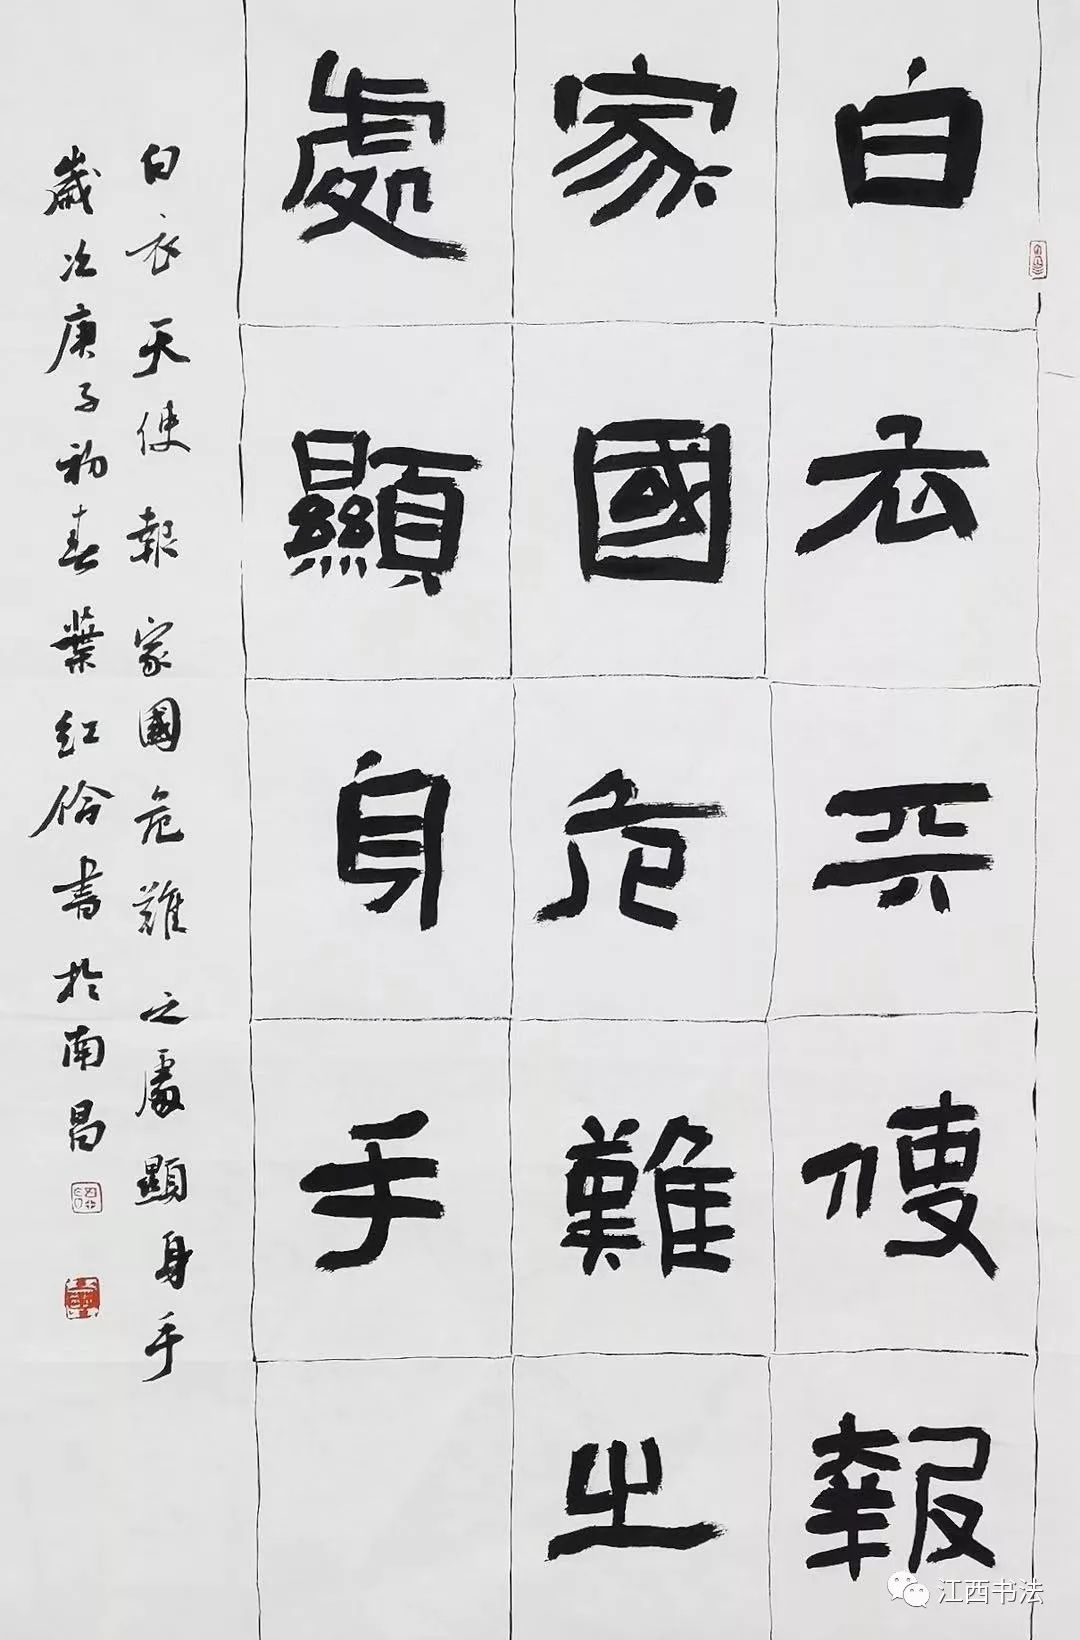 白衣天使報
家國危難之
處顯身手
白衣天使報家國危難之處顯身手
歲次庚子初春葉紅俗書於南昌
江西书法